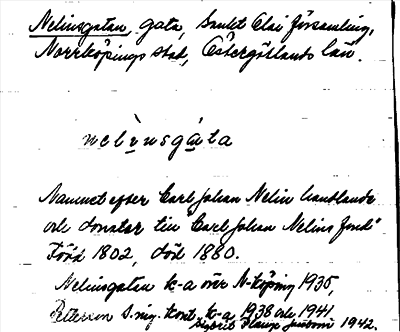 Nelinsgatan, gata, Sankt Olai församling,
Norrköpings stad, Östergötlands län.
nelinsgata
Namnet efter Carl Johan Nelin handlande
och donator till "Carl Johan Nelins fond"
Född 1802, död 1880.
Nelinsgatan k-a över N-köping 1935,
Petterson S. ing. kont. k-a 1938 och 1941
Sigurd 1942.